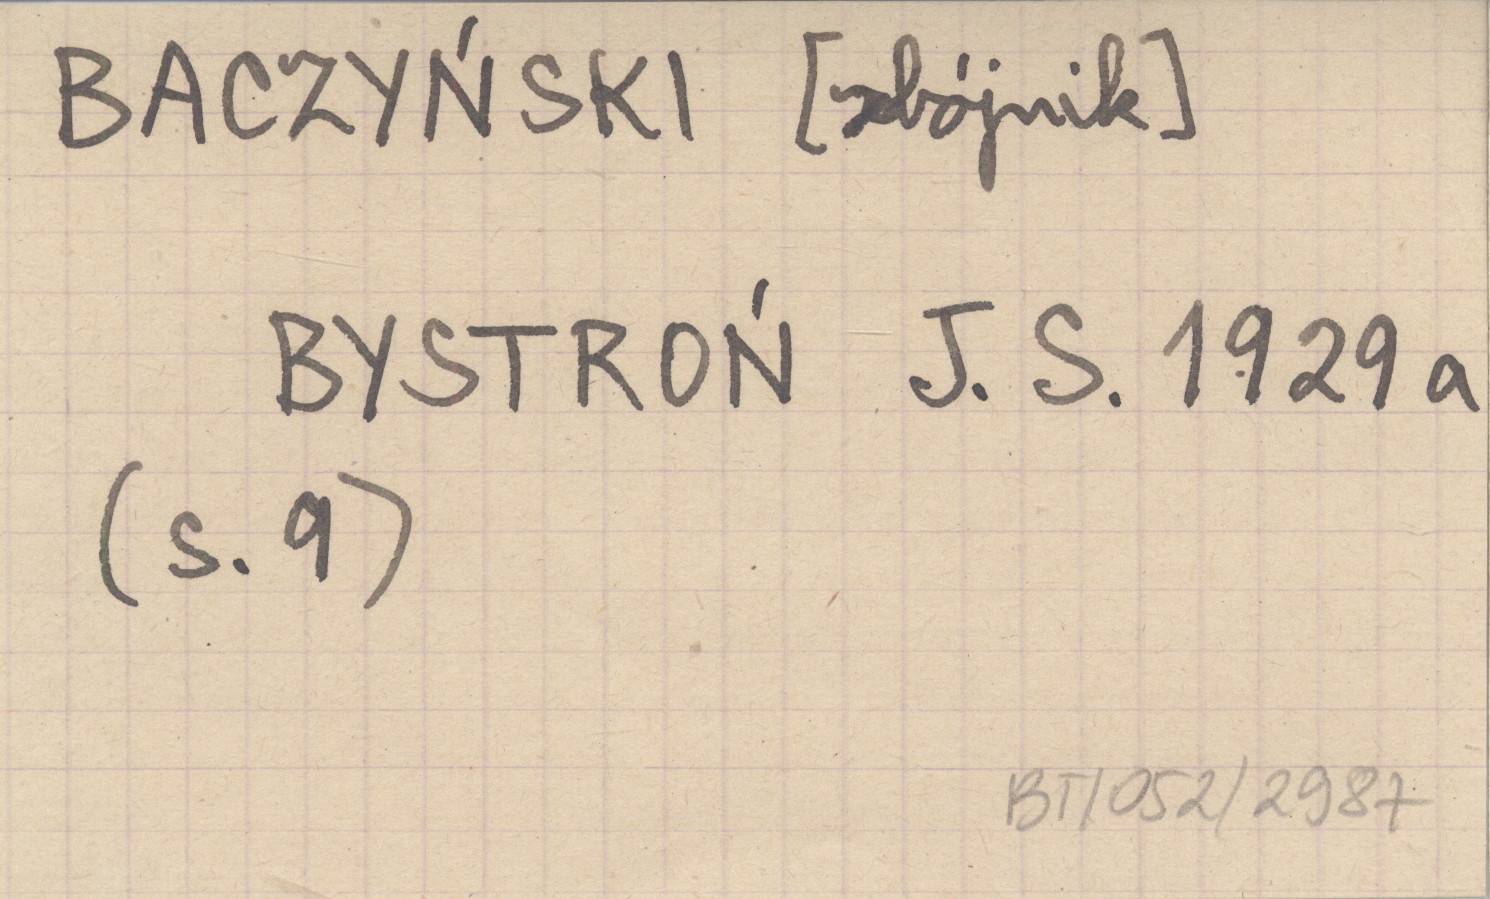 BACZYŃSKI [zbójnik]
BYSTROŃ J. S. 1929a
(s. 9)
BT/052/2987